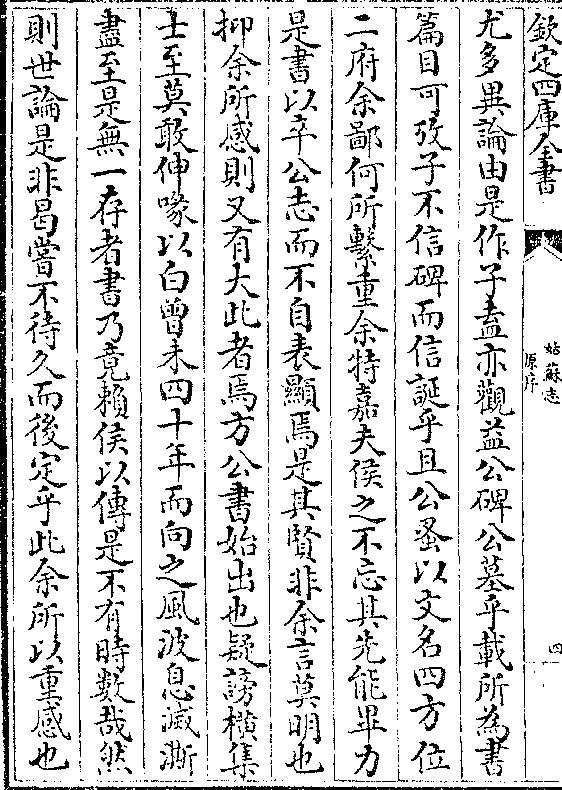 欽定四庫全書
姑蘇志
原序
四
尤多異論由是作子盍亦觀益公碑公墓乎載所為書
篇目可攷子不信碑而信誕乎且公蚤以文名四方位
二府余鄙何所繫重余特嘉夫侯之不忘其先能畢力
是書以卒公志而不自表顯焉是其賢非余言莫明也
抑余所感則又有大此者焉方公書始出也疑謗横集
士至莫敢伸喙以白曾未四十年而向之風波息滅澌
盡至是無一存者書乃竟賴侯以傳是不有時數哉然
則世論是非曷嘗不待久而後定乎此余所以重感也